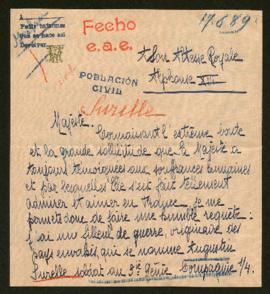 Fecho
e.a.e.
A Son Altesse Royale
Alphonse XIII
POBLACIÓN
CIVIL
Surelle
Majesté.
Connaissant l'extrême bonté
et la grande sollicitude que la Majesté a
toujours témoignées aux souffrances humaines
et par lesquelles Elle s'est fait tellement
admirer et aimer en France – je me
permets donc de faire une humble requête:
j'ai un filleul de guerre, originaire des
pays envahis, qui se nomme Augustin
Surelle soldat au Génie Compagnie